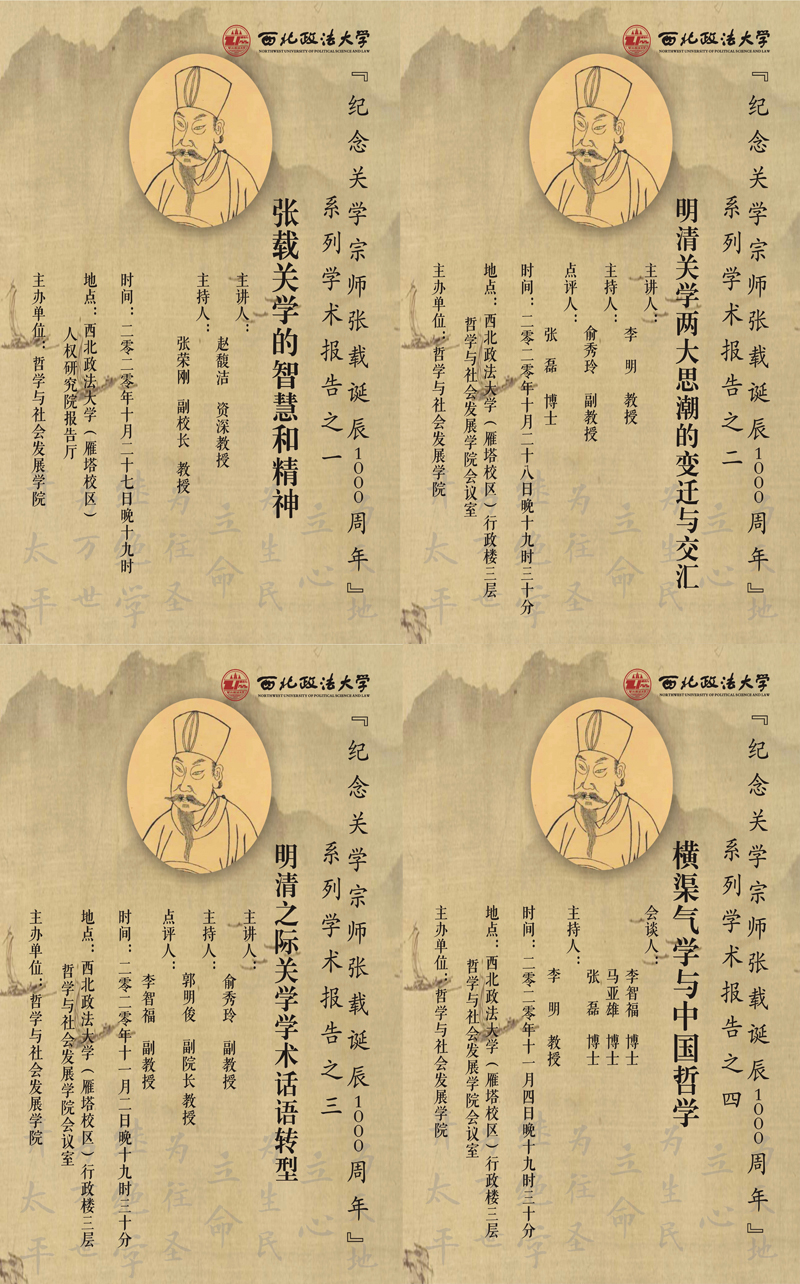 西北政法大学
NORTHWEST UNIVERSITY OF POLITICAL SCIENCE AND LAW
『纪念关学宗师张载诞辰1000周年』
系列学术报告之一
张载关学的智慧和精神
主讲人：
赵馥洁 资深教授
主持人：
张荣刚 副校长 教授
时间：二零二零年十月二十七日晚十九时
地点：西北政法大学（雁塔校区）
人权研究院报告厅
主办单位：哲学与社会发展学院
立心
生民
立命
为往圣
继绝学
万世
太平
西北政法大学
NORTHWEST UNIVERSITY OF POLITICAL SCIENCE AND LAW
『纪念关学宗师张载诞辰1000周年』
系列学术报告之二
明清关学两大思潮的变迁与交汇
主讲人：
李明 教授
主持人：
俞秀玲 副教授
点评人：
张磊 博士
时间：二零二零年十月二十八日晚十九时三十分
地点：西北政法大学（雁塔校区）行政楼三层
哲学与社会发展学院会议室
主办单位：哲学与社会发展学院
地
立心
生民
立命
为往圣
继绝学
万世
太平
西北政法大学
NORTHWEST UNIVERSITY OF POLITICAL SCIENCE AND LAW
『纪念关学宗师张载诞辰1000周年』
系列学术报告之三
明清之际关学学术话语转型
主讲人：
俞秀玲 副教授
主持人：
郭明俊 副院长 教授
点评人：
李智福 副教授
时间：二零二零年十一月二日晚十九时三十分
地点：西北政法大学（雁塔校区）行政楼三层
哲学与社会发展学院会议室
主办单位：哲学与社会发展学院
立心
生民
立命
为往圣
继绝学
万世
太平
西北政法大学
NORTHWEST UNIVERSITY OF POLITICAL SCIENCE AND LAW
『纪念关学宗师张载诞辰1000周年』
系列学术报告之四
横渠气学与中国哲学
会谈人：
李智福 博士
马亚雄 博士
张磊 博士
主持人：
李明 教授
时间：二零二零年十一月四日晚十九时三十分
地点：西北政法大学（雁塔校区）行政楼三层
哲学与社会发展学院会议室
主办单位：哲学与社会发展学院
地
立心
生民
立命
为往圣
继绝学
万世
太平